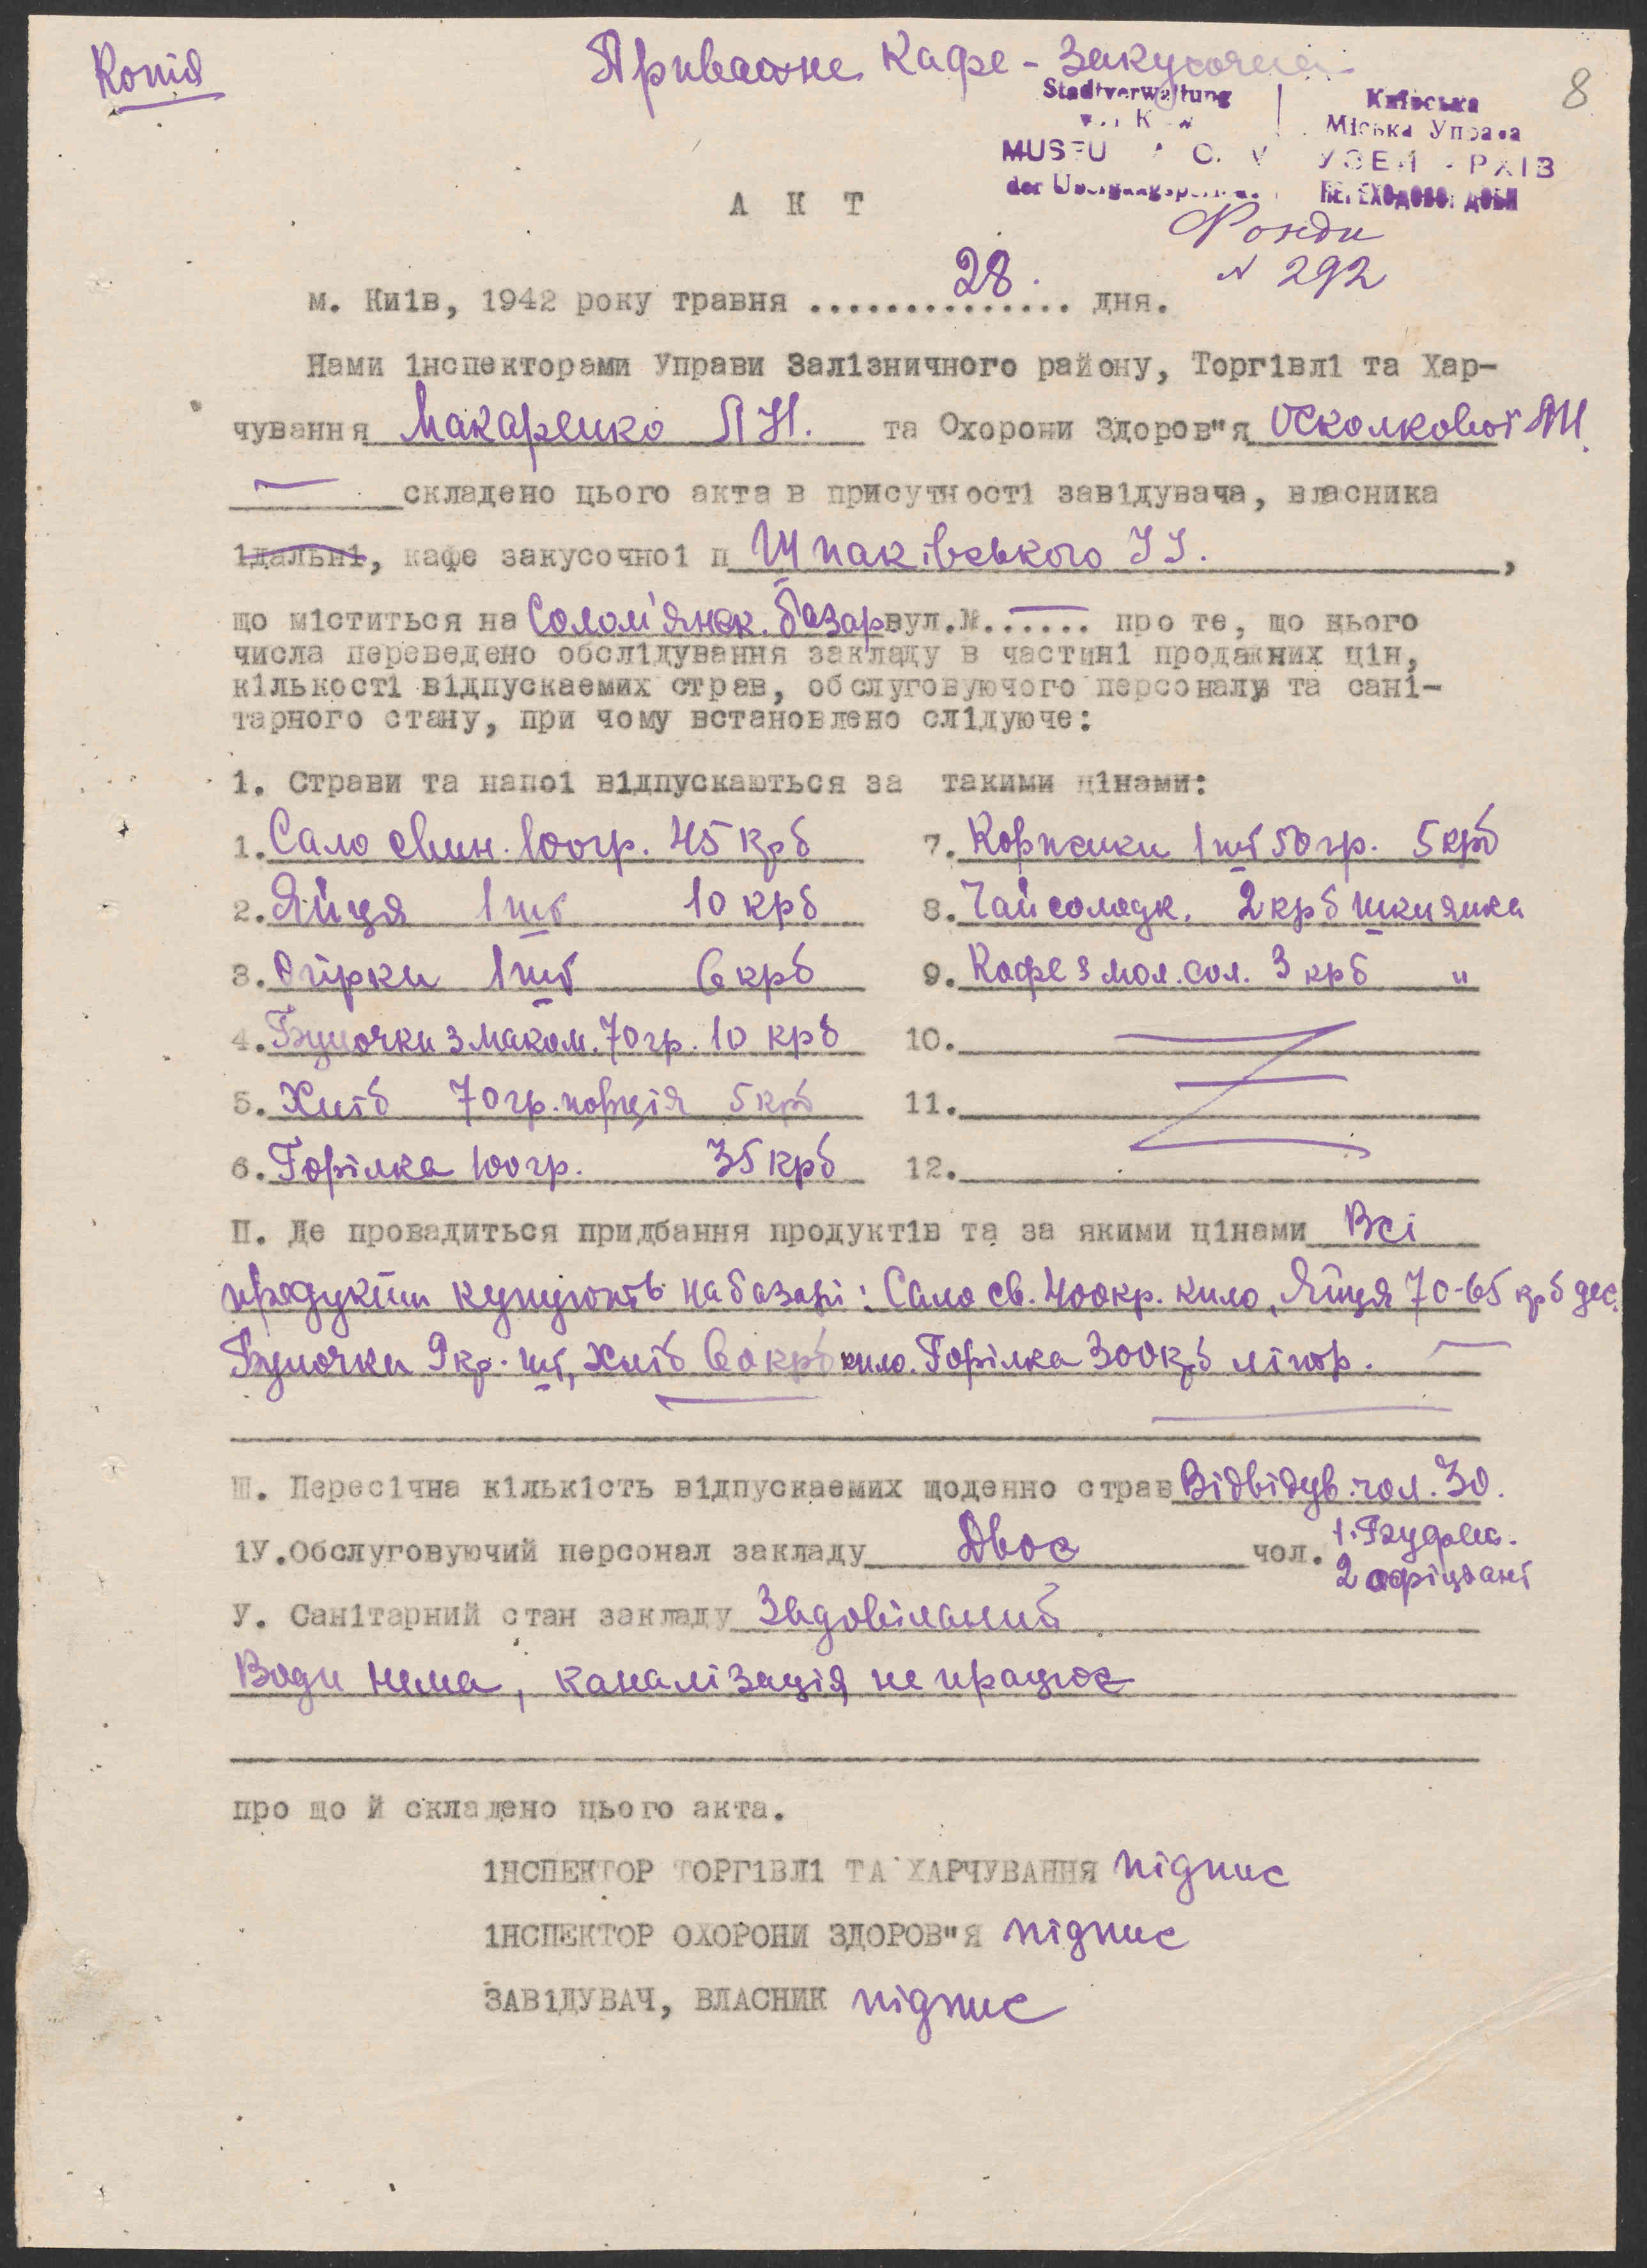 Копія
Приватне Кафе - Закусочна
8
Stadtverwaltung
Київська
Міська Управа
MUSEU
der
ПЕРЕХОДОВОІ ДОБИ
Фонди
N 292
А К Т
м. Киів, 1942 року травня ..... 28. ..... дня.
Нами інспекторами Управи Залізничного району, Торгівлі та Хар-
чування Макаренко П Н. та Охорони Здоров"я Осколкової М
— складено цього акта в присутності завідувача, власника
ідальні, кафе закусочноі п Шпаківського І І. ,
що міститься на Солом'янск. базар вул.№...... про те, що цього
числа переведено обслідування закладу в частині продажних цін,
кількості відпускаемих страв, обслуговуючого персоналу та сані-
тарного стану, при чому встановлено слідуюче:
1. Страви та напоі відпускаються за такими цінами:
1. Сало свин. 100гр. 45 крб
2. Яйця 1 шт 10 крб
3. Огірки 1 шт 6 крб
4. Булочки з маком. 70 гр. 10 крб
5. Хліб 70 гр. порція 5 крб
6. Горілка 100 гр. 35 крб
7. Коржики 1 шт 50 гр. 5 крб
8. Чай солодк. 2 крб шклянка
9. Кофе з мол. сол. 3 крб "
10.
11.
12.
П. Де провадиться придбання продуктів та за якими цінами Всі
продукти купують на базарі: Сало св. 400кр. кило, Яйця 70-65 крб дес.
Булочки 9 кр. шт, хліб 60 крб кило. Горілка 300крб літр. —
Ш. Пересічна кількість відпускаемих щоденно страв Відвідув. чол. 30.
ІУ.Обслуговуючий персонал закладу Двоє чол. 1. Буфетн.
2 офіціант
У. Санітарний стан закладу Задовільний
Води нема, каналізація не працює
про що й складено цього акта.
ІНСПЕКТОР ТОРГІВЛІ ТА ХАРЧУВАННЯ підпис
ІНСПЕКТОР ОХОРОНИ ЗДОРОВ"Я підпис
ЗАВІДУВАЧ, ВЛАСНИК підпис